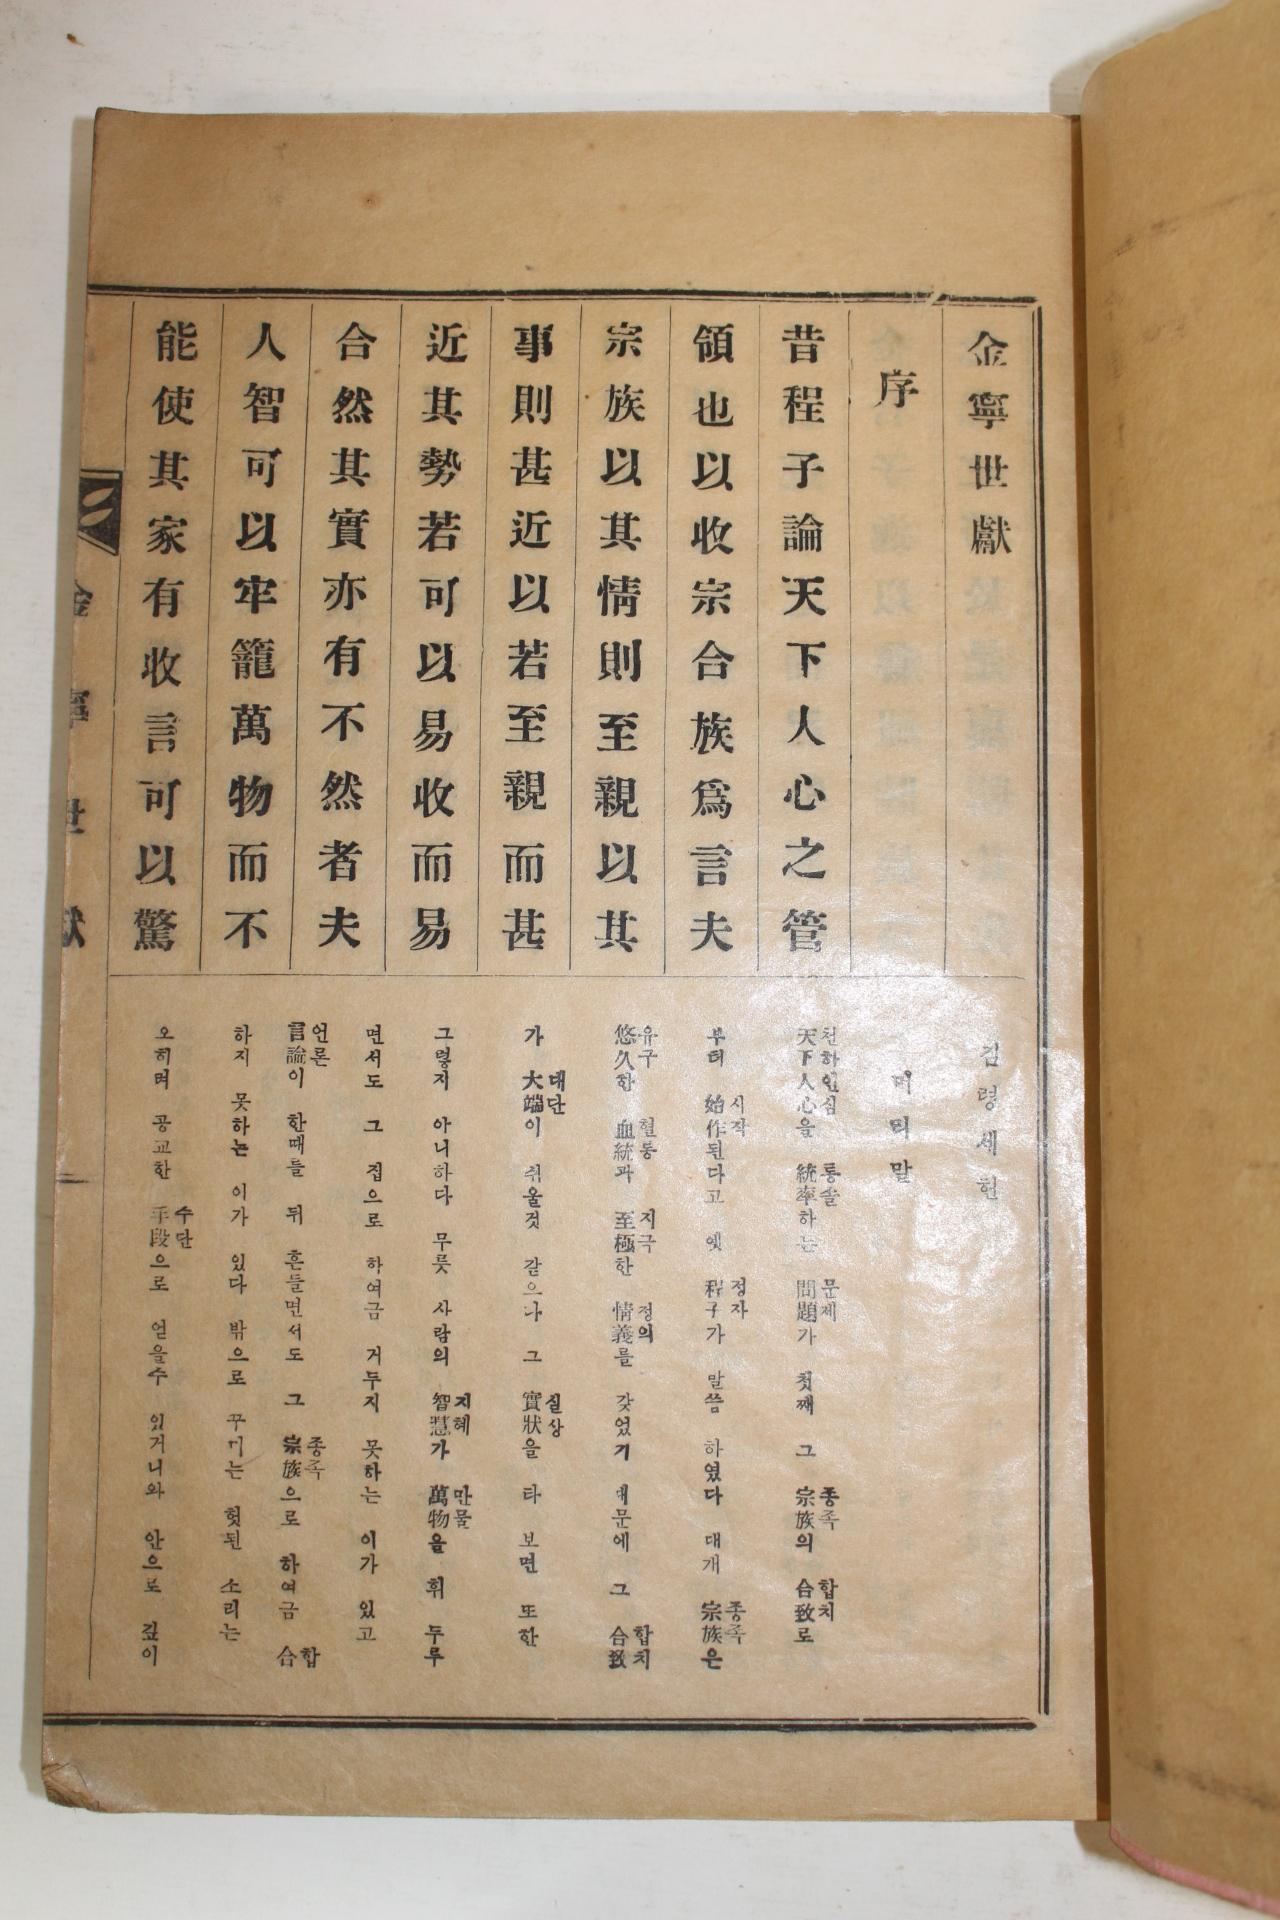 金寧世獻
序
昔程子論天下人心之管
領也以收宗合族爲言夫
宗族以其情則至親以其
事則甚近以若至親而甚
近其勢若可以易收而易
合然其實亦有不然者夫
人智可以牢籠萬物而不
能使其家有收言可以驚
김령세헌
머리말
天下人心을 統率하는 問題가 첫째 그 宗族의 合致로
천하인심 통솔 문제 종족 합치
부터 始作된다고 옛 程子가 말씀 하였다 대개 宗族은
시작 정자 종족
悠久한 血統과 至極한 情義를 갖었기 때문에 그 合致
유구 혈통 지극 정의 합치
가 大端이 쉬울것 같으나 그 實狀을 타 보면 또한
대단 실상
그렇지 아니하다 무릇 사람의 智慧가 萬物을 휘 두루
지혜 만물
면서도 그 집으로 하여금 거두지 못하는 이가 있고
言論이 한때를 뒤 흔들면서도 그 宗族으로 하여금 合
언론 종족 합
하지 못하는 이가 있다 밖으로 꾸미는 헛된 소리는
오히려 공교한 手段으로 얻을수 있거니와 안으로 깊이
수단
金寧世獻